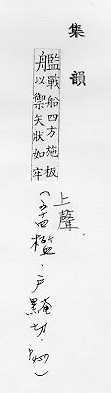 集韻
艦戰船四方施板
以禦矢狀如牢
上聲.
(五十四檻.戶黤切.)